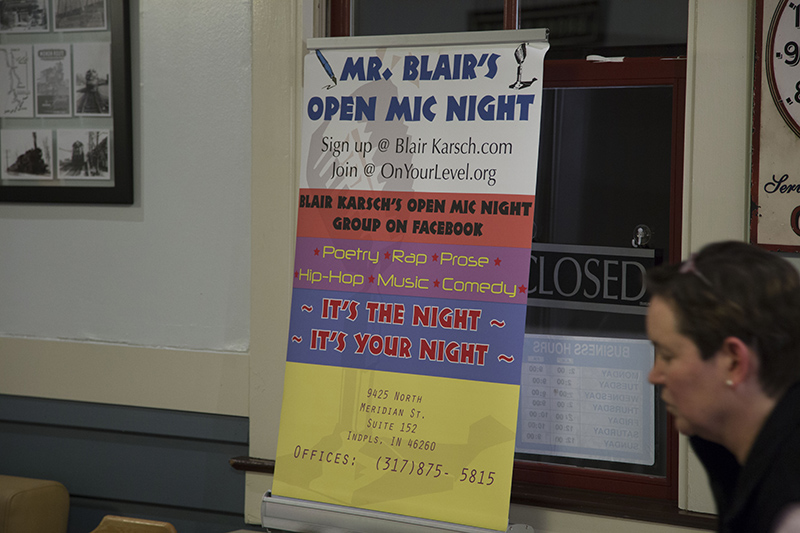 MR. BLAIR'S
OPEN MIC NIGHT
Sign up @ Blair Karsch.com
Join @ OnYourLevel.org
BLAIR KARSCH'S OPEN MIC NIGHT
GROUP ON FACEBOOK
★Poetry★Rap★Prose★
★Hip-Hop★Music★Comedy★
~ IT'S THE NIGHT ~
~ IT'S YOUR NIGHT ~
9425 NORTH
MERIDIAN ST.
SUITE 152
INDPLS, IN 46260
OFFICES: (317)875- 5815
CLOSED
BUSINESS HOURS
MONDAY
TUESDAY
WEDNESDAY
THURSDAY
FRIDAY
SATURDAY
SUNDAY
9
8